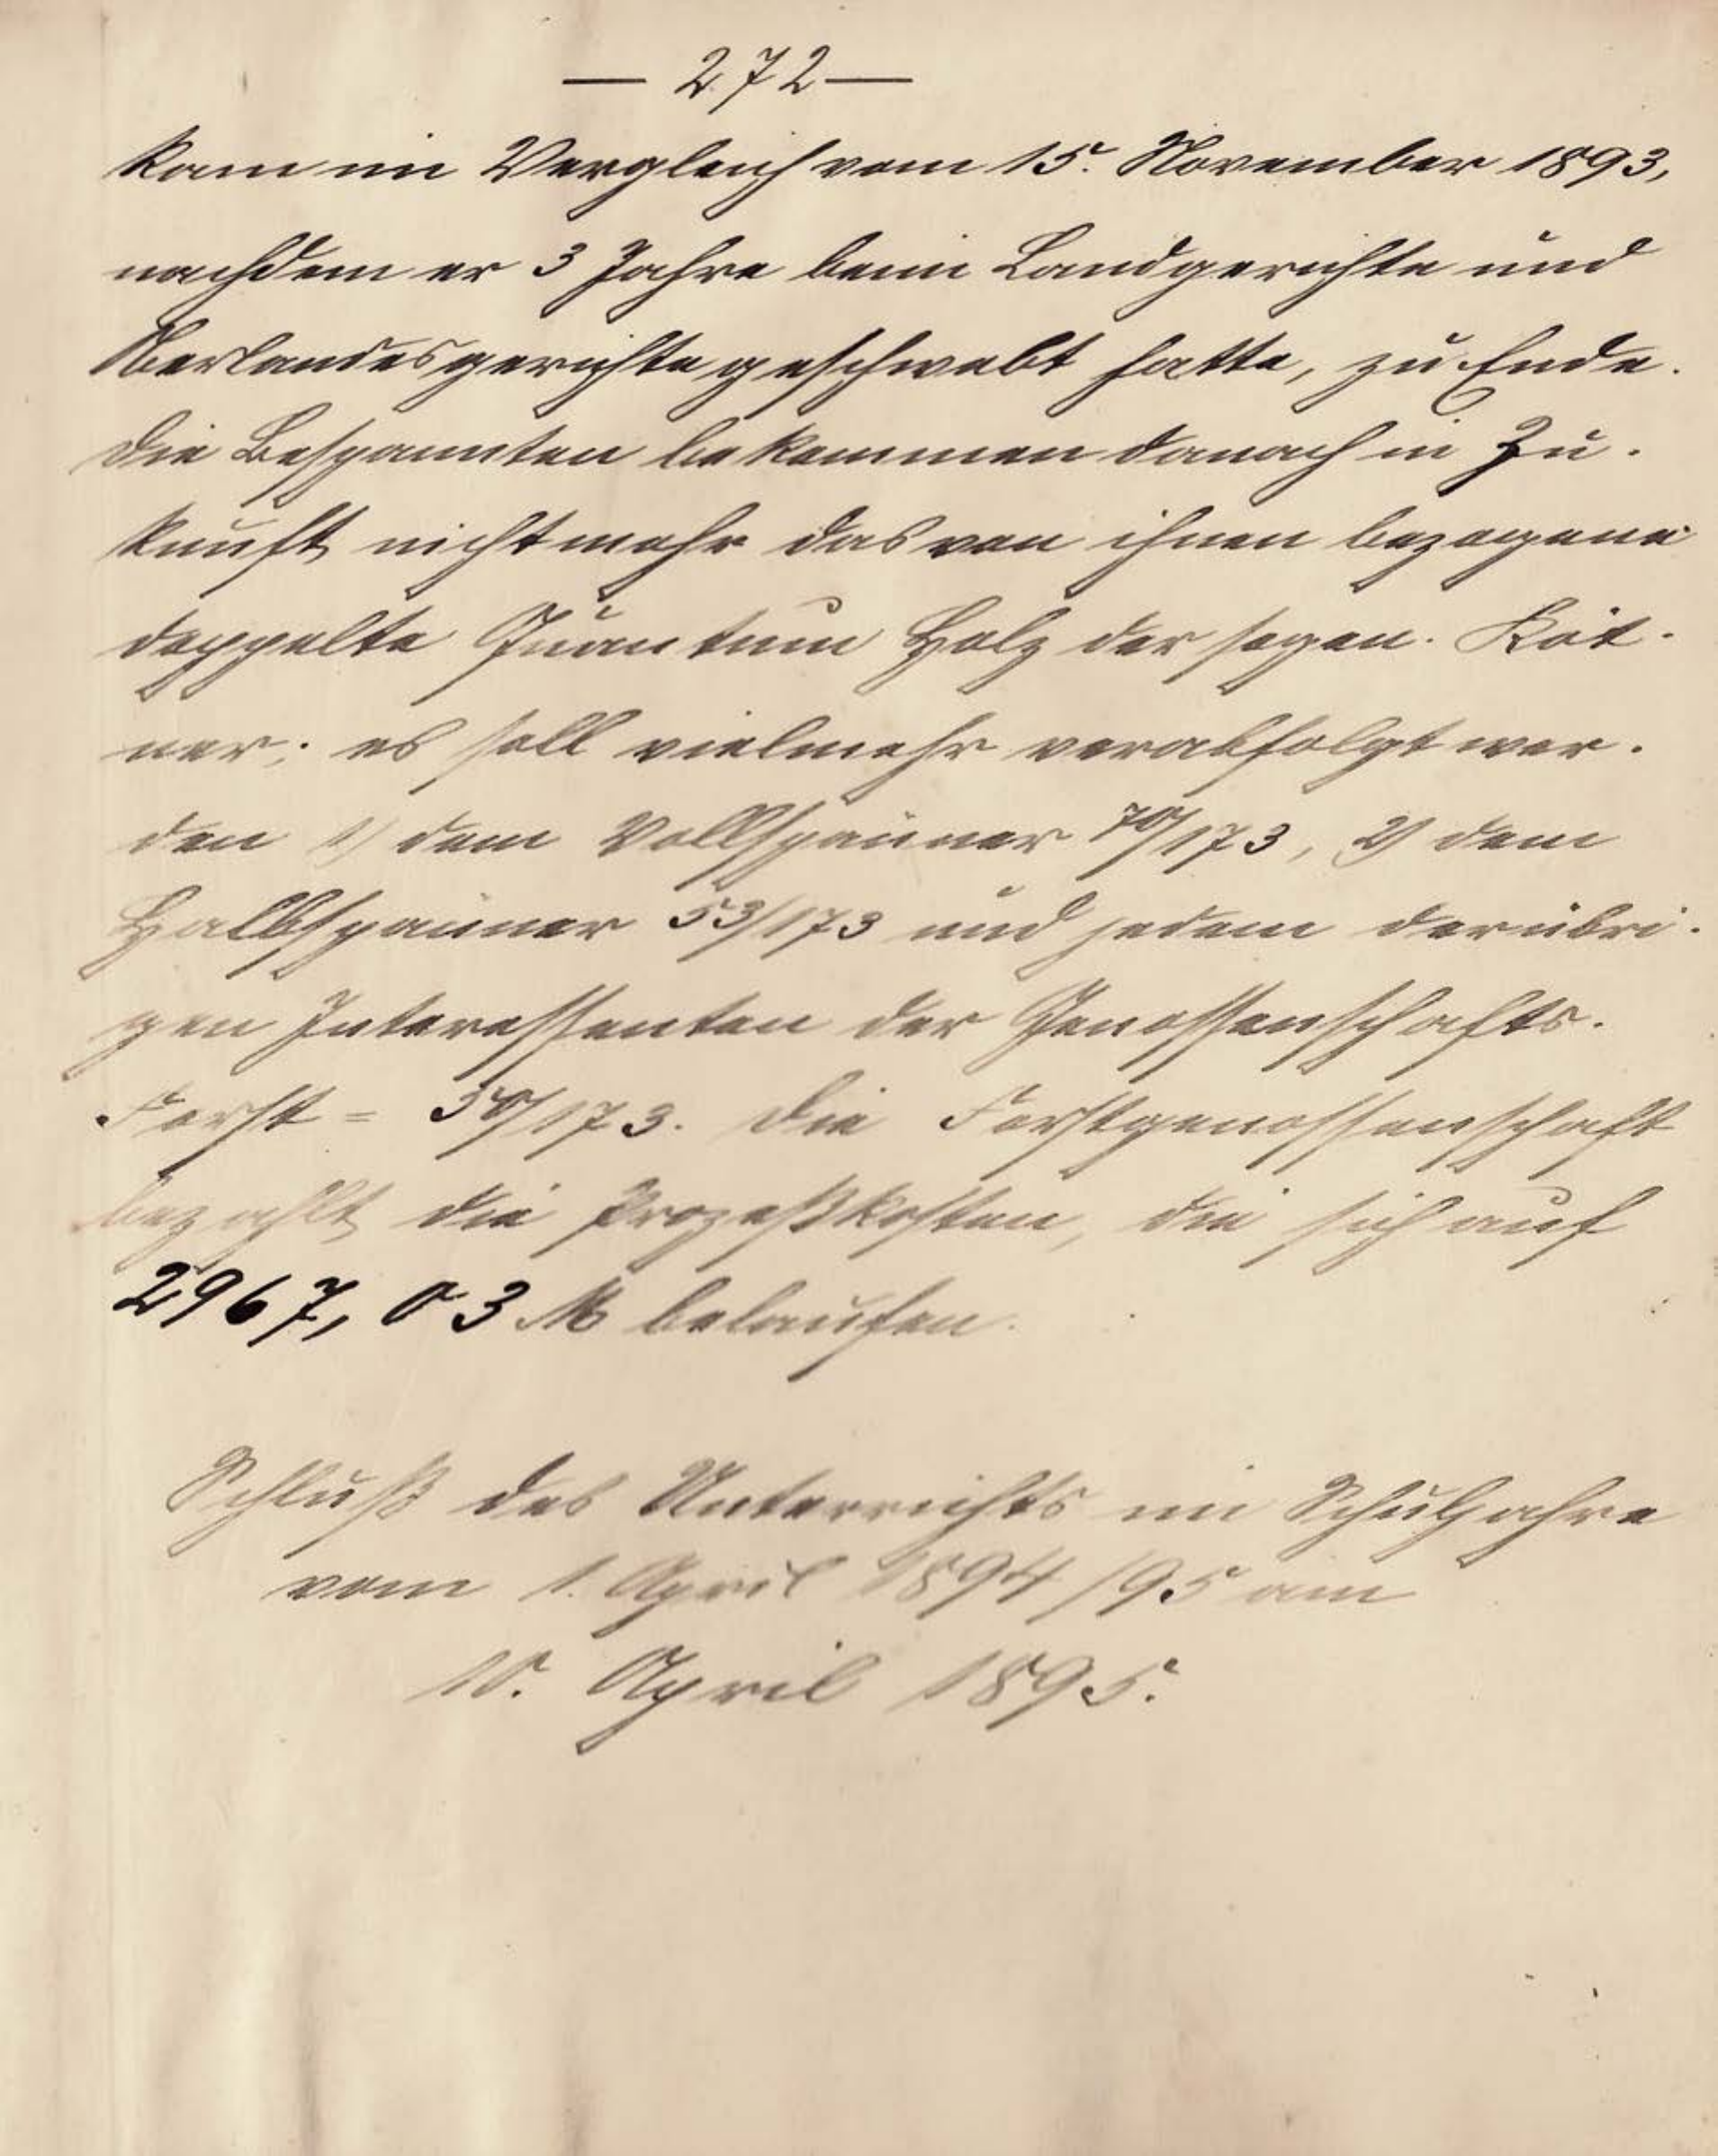 — 272 —
kam im Vergleich vom 15. November 1893,
nachdem er 3 Jahre beim Landgerichte und
Oberlandesgerichte geschwebt hatte, zu Ende.
Die Bespannten bekommen danach in Zu-
kunft nicht mehr das von ihnen bezogene
doppelte Quantum Holz der sogen. Köt-
ner; es soll vielmehr verabfolgt wer-
den 1) dem Vollspänner 70/173, 2) dem
Halbspänner 53/173 und jedem der übri-
gen Interessenten der Genossenschafts-
Forst = 50/173. Die Forstgenossenschaft
bezahlt die Prozeßkosten, die sich auf
2967,03 M belaufen.
Schluß des Unterrichts im Schuljahre
vom 1. April 1894/95 am
10. April 1895.